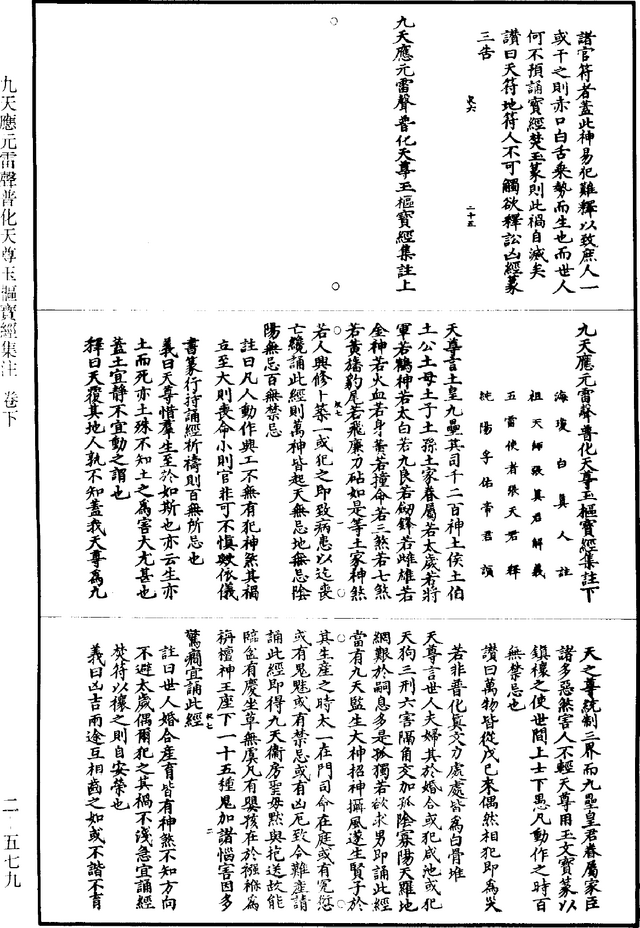 諸官符者蓋此神易犯難釋以致庶人一
或干之則赤口白舌乘勢而生也而世人
何不預誦寶經焚玉篆則此禍自滅矣
讚曰天符地符人不可觸欲釋訟凶經篆
三告
九天應元雷聲普化天尊玉樞寶經集註上
九天應元雷聲普化天尊玉樞寶經集註下
海瓊白真人註
祖天師張真君解義
五雷使者張天君釋
純陽孚佑帝君讚
天尊言土皇九壘其司千二百神土侯土伯
土公土母土子土孫土家眷屬若太歲若將
軍若鶴神若太白若九良若劍鋒若雌雄若
金神若火血若身黃若撞命若三煞若七煞
若黃旛豹尾若飛廉刀砧如是等土家神煞
若人興修卜築一或犯之即致病患以迄喪
亡纔誦此經則萬神皆起天無忌地無忌陰
陽無忌百無禁忌
註曰凡人動作興工不無有犯神煞其禍
立至大則喪命小則官非可不慎歟依儀
書篆行持誦經祈禱則百無所忌也
義曰天尊惜羣生至於如斯也亦云生亦
土而死亦土殊不知土之爲害大尤甚也
蓋土宜靜不宜動之謂也
釋曰天覆其地人孰不知蓋我天尊爲九
天之尊統制三界而九壘皇君眷屬家臣
諸多惡煞害人不輕天尊用玉文寶篆以
鎮禳之使世間上士下愚凡動作之時百
無禁忌也
讚曰萬物皆從戊己來偶然相犯即爲災
若非普化真文力處處皆爲白骨堆
天尊言世人夫婦其於婚合或犯咸池或犯
天狗三刑六害隔角交加孤陰寡陽天羅地
網艱於嗣息多是孤獨若欲求男即誦此經
當有九天監生大神招神攝風遂生賢子於
其生產之時太一在門司命在庭或有冤愆
或有鬼魅或有禁忌或有凶厄致令難產請
誦此經即得九天衛房聖母默與抱送故能
臨盆有慶坐草無虞凡有嬰孩在於襁褓爲
㨝檀神王座下一十五種鬼加諸惱害因多
驚癇宜誦此經
註曰世人婚合產育皆有神煞不知方向
不避太歲偶爾犯之其禍不淺急宜誦經
焚符以禳之則自安榮也
義曰凶吉兩途互相齒之如或不諧不育
九天應元雷聲普化天尊玉樞寶經集注 卷下
二·五七九